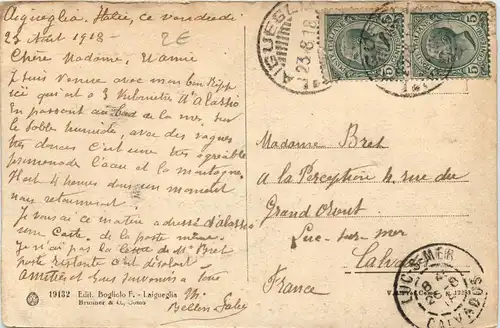 Aigueglia, Italie, ce vendredi
23 Aout 1918 - 2€
Chère Madame, Uanne
Je suis venue avec mon bon Bipp
ici qui est a 3 kilometre d'Alassio
En passant au bord de la mer, sur
le sable humide, avec des vagues
tres douces c'est une très agréable
promenade l'eau et la montagne.
4 heures dans un moment
nous retournerons.
Je vous ai ce matin adressé d'Alassio
une Carte, de la poste même.
Je n'ai pas la de Mr Bret
poste restante c'est désolant
Amitiés et bons souvenirs a Tous
19132 Edit. Bogliolo F. - Laigueglia
Brunner & C., Como
AIGUEGLI
23.8.18
POSTE ITALIANE
5
5
Madame Bret
A la Perception 4, rue du
Grand Orient
Luc-sur-mer
Calvados
France
LUC-S-MER
CALVADOS